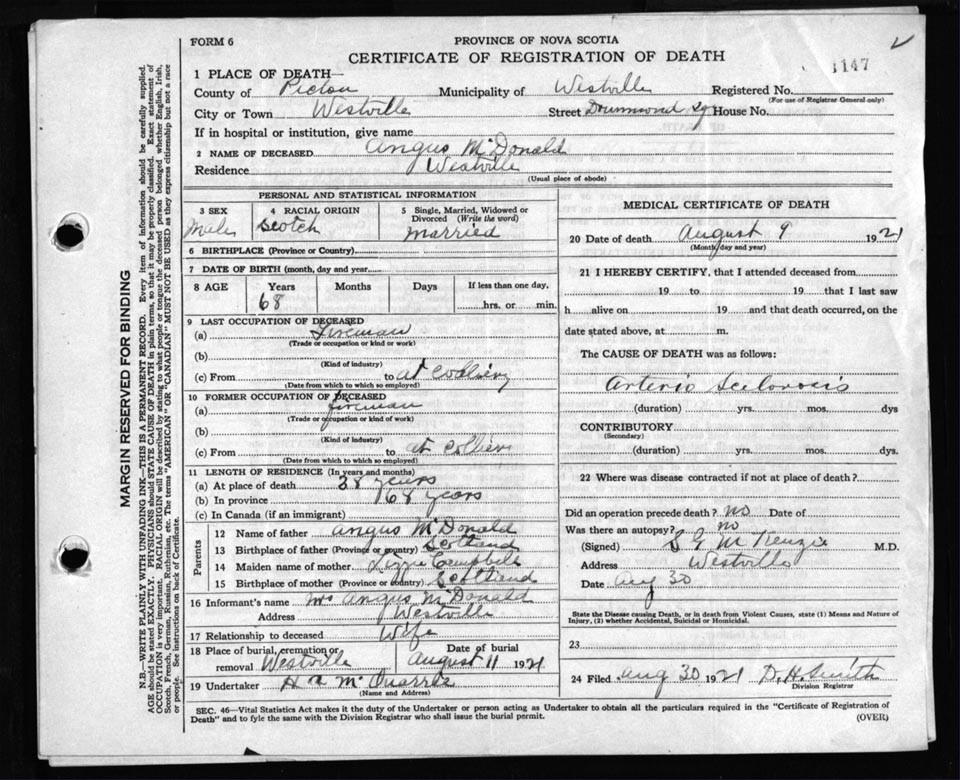 FORM 6
PROVINCE OF NOVA SCOTIA
CERTIFICATE OF REGISTRATION OF DEATH
1147
1 PLACE OF DEATH—
County of Pictou Municipality of Westville Registered No.
(For use of Registrar General only)
City or Town Westville Street Drummond Sq House No.
If in hospital or institution, give name
2 NAME OF DECEASED Angus McDonald
Residence Westville
(Usual place of abode)
PERSONAL AND STATISTICAL INFORMATION
3 SEX Male
4 RACIAL ORIGIN Scotch
5 Single, Married, Widowed or Divorced (Write the word) married
6 BIRTHPLACE (Province or Country)
7 DATE OF BIRTH (month, day and year)
8 AGE Years 68 Months Days If less than one day, hrs. or min.
9 LAST OCCUPATION OF DECEASED
(a) Fireman
(Trade or occupation or kind or work)
(b)
(Kind of industry)
(c) From to at Colliery
(Date from which to which so employed)
10 FORMER OCCUPATION OF DECEASED
(a) fireman
(Trade or occupation or kind of work)
(b)
(Kind of industry)
(c) From to at Colliery
(Date from which to which so employed)
11 LENGTH OF RESIDENCE (In years and months)
(a) At place of death 38 years
(b) In province 68 years
(c) In Canada (if an immigrant)
Parents
12 Name of father Angus McDonald
13 Birthplace of father (Province or country) Scotland
14 Maiden name of mother Lizzie Campbell
15 Birthplace of mother (Province or country) Scotland
16 Informant's name Mrs Angus McDonald
Address Westville
17 Relationship to deceased Wife
18 Place of burial, cremation or removal Westville Date of burial August 11 1921
19 Undertaker H a McQuarrie
(Name and Address)
MEDICAL CERTIFICATE OF DEATH
20 Date of death August 9 1921
(Month, day and year)
21 I HEREBY CERTIFY, that I attended deceased from
19 to 19 that I last saw
h alive on 19 and that death occurred, on the
date stated above, at m.
The CAUSE OF DEATH was as follows:
Arterio Sclorosis
(duration) yrs. mos. dys
CONTRIBUTORY
(Secondary)
(duration) yrs. mos. dys.
22 Where was disease contracted if not at place of death?
Did an operation precede death? no Date of
Was there an autopsy? no
(Signed) S G McKenzie M.D.
Address Westville
Date Aug 30
State the Disease causing Death, or in death from Violent Causes, state (1) Means and Nature of
Injury, (2) whether Accidental, Suicidal or Homicidal.
23
24 Filed Aug 30 1921 D. H. Smith
Division Registrar
SEC. 46—Vital Statistics Act makes it the duty of the Undertaker or person acting as Undertaker to obtain all the particulars required in the "Certificate of Registration of
Death" and to fyle the same with the Division Registrar who shall issue the burial permit.
(OVER)
MARGIN RESERVED FOR BINDING
N.B.—WRITE PLAINLY WITH UNFADING INK—THIS IS A PERMANENT RECORD. Every item of information should be carefully supplied.
AGE should be stated EXACTLY. PHYSICIANS should STATE CAUSE OF DEATH in plain terms, so that it may be properly classified. Exact statement of
OCCUPATION is very important. RACIAL ORIGIN will be described by stating to what people or tongue the deceased person belonged whether English, Irish,
Scotch, French, German, Russian, Ruthenian, etc. The terms "AMERICAN" or "CANADIAN" MUST NOT BE USED as they express citizenship but not a race
or people. See instructions on back of Certificate.